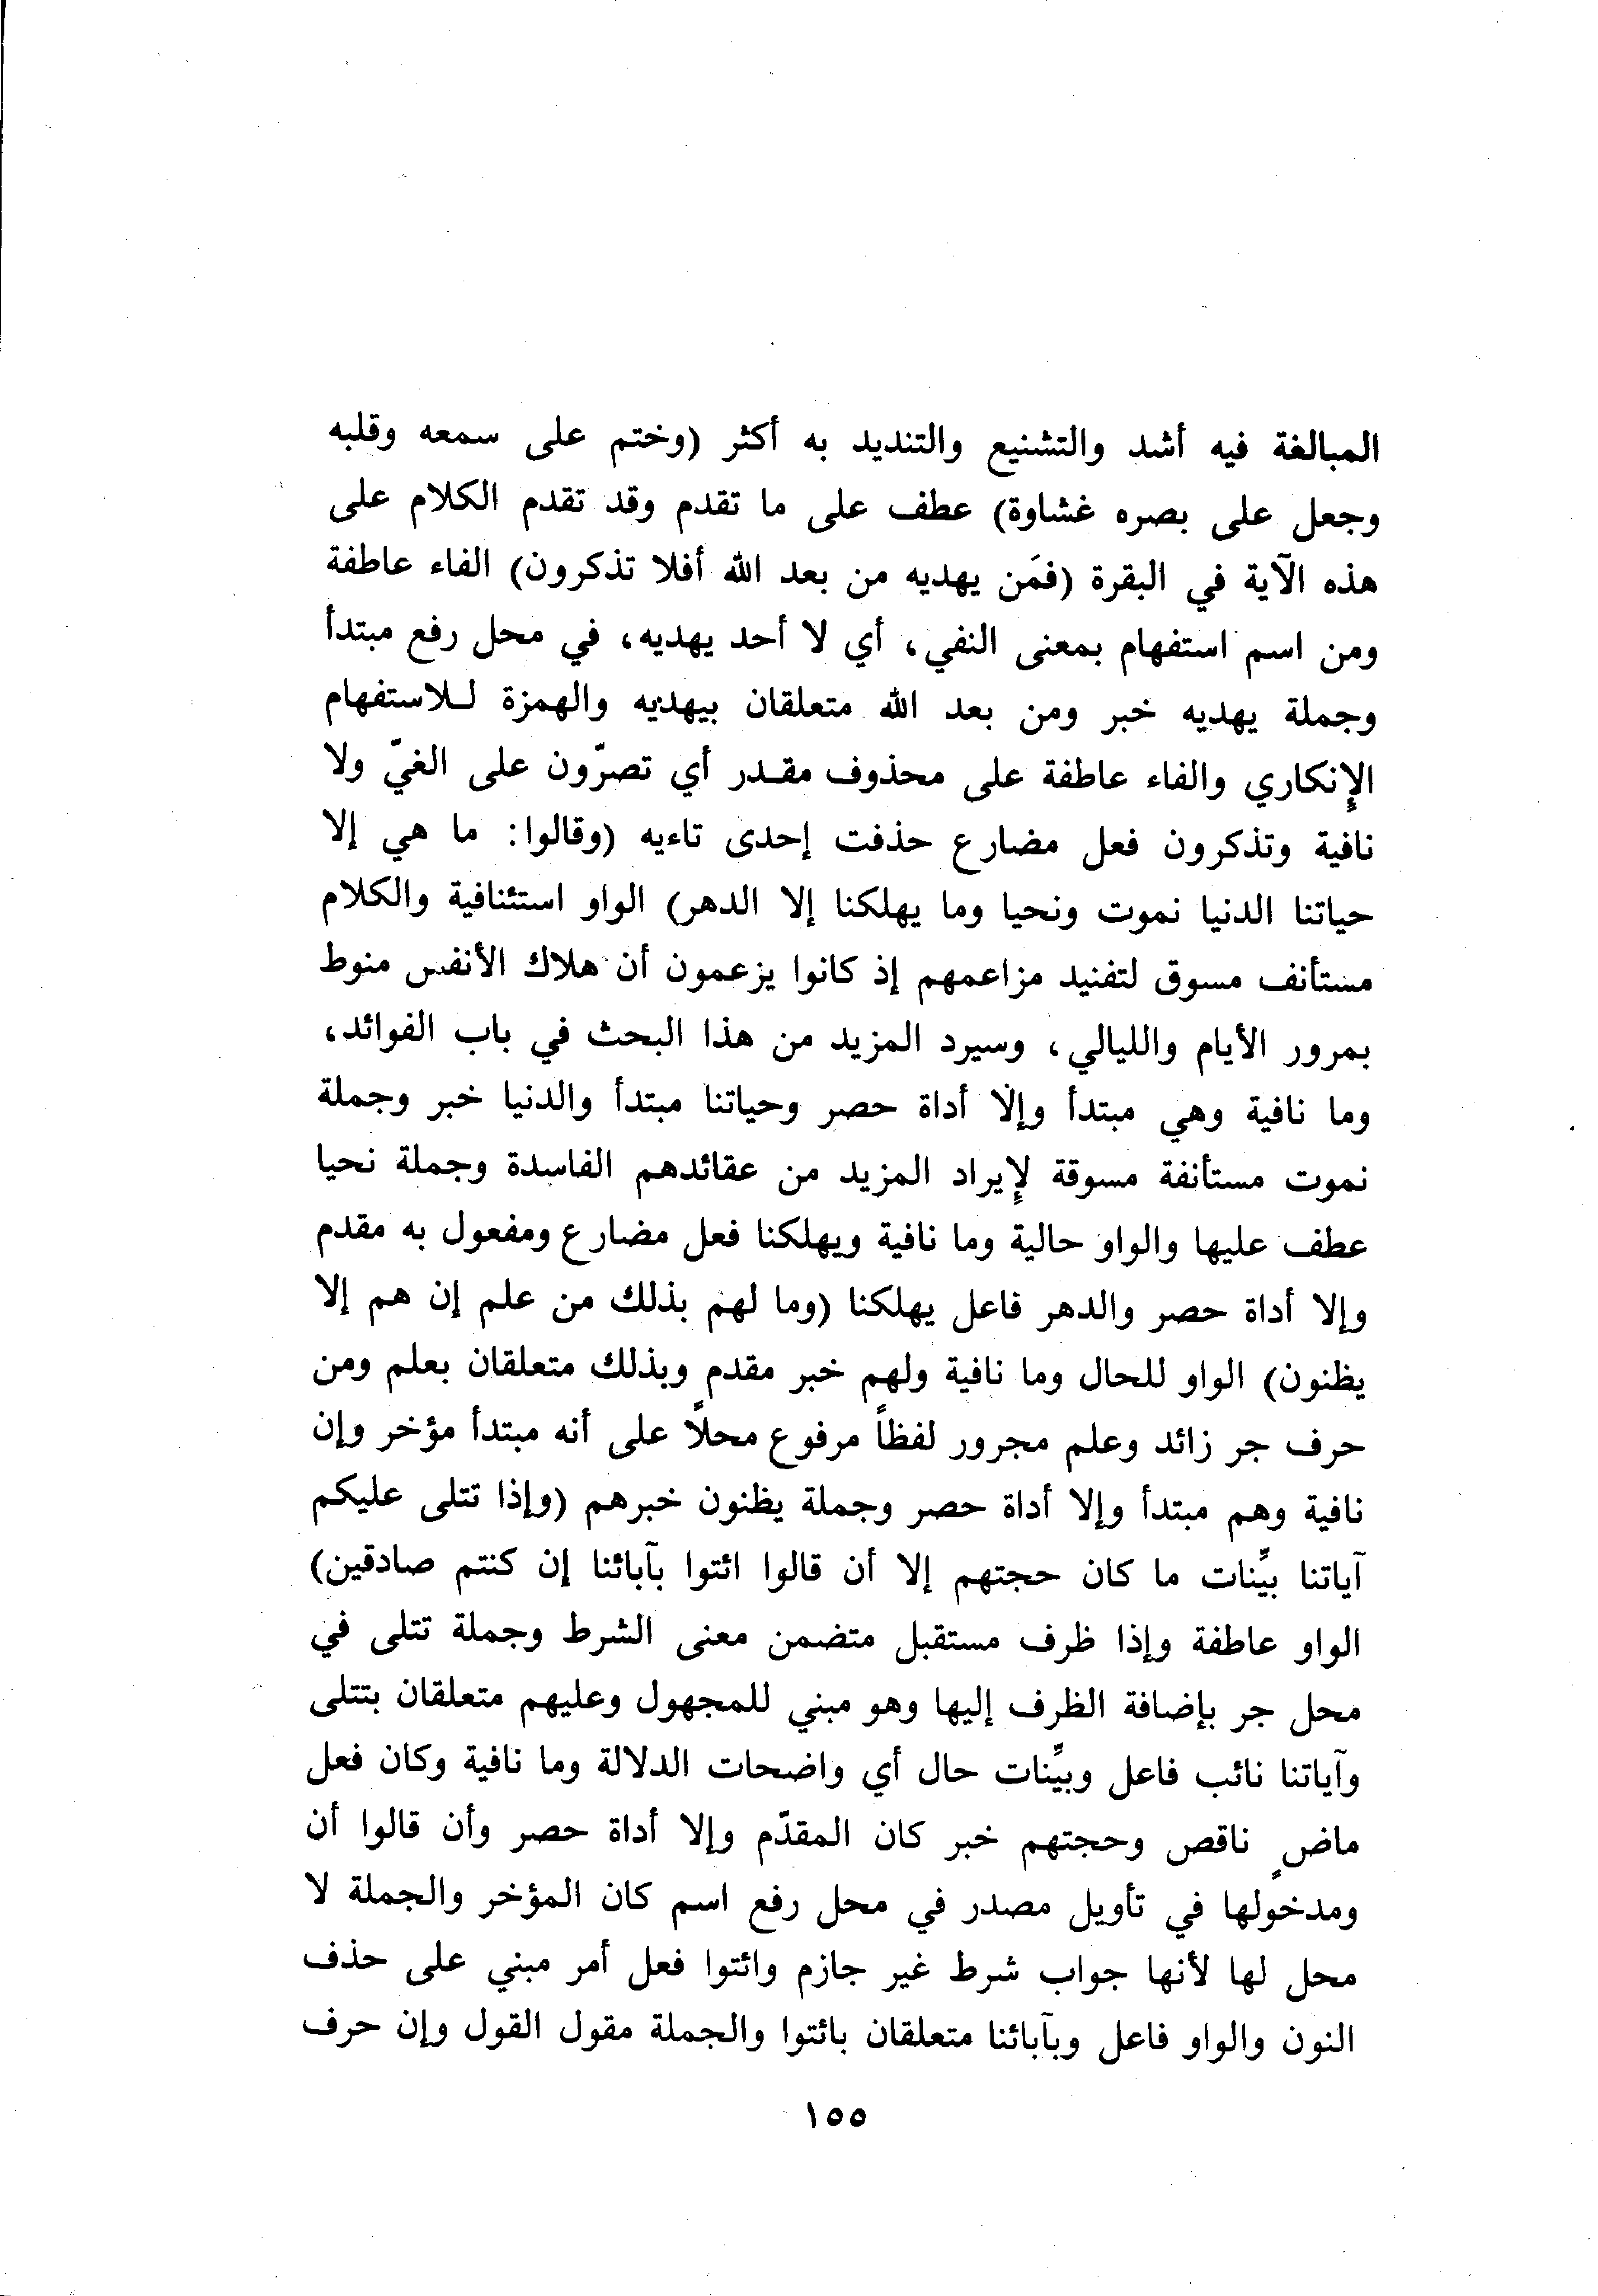 المبالغة فيه أشد والتشنيع والتنديد به أكثر (وختم على سمعه وقلبه
وجعل على بصره غشاوة) عطف على ما تقدم وقد تقدم الكلام على
هذه الآية في البقرة (فمَن يهديه من بعد الله أفلا تذكرون) الفاء عاطفة
ومن اسم استفهام بمعنى النفي، أي لا أحد يهديه، في محل رفع مبتدأ
وجملة يهديه خبر ومن بعد الله متعلقان بيهديه والهمزة للاستفهام
الإنكاري والفاء عاطفة على محذوف مقدر أي تصرّون على الغيّ ولا
نافية وتذكرون فعل مضارع حذفت إحدى تاءيه (وقالوا: ما هي إلا
حياتنا الدنيا نموت ونحيا وما يهلكنا إلا الدهر) الواو استئنافية والكلام
مستأنف مسوق لتفنيد مزاعمهم إذ كانوا يزعمون أن هلاك الأنفس منوط
بمرور الأيام والليالي، وسيرد المزيد من هذا البحث في باب الفوائد،
وما نافية وهي مبتدأ وإلّا أداة حصر وحياتنا مبتدأ والدنيا خبر وجملة
نموت مستأنفة مسوقة لإيراد المزيد من عقائدهم الفاسدة وجملة نحيا
عطف عليها والواو حالية وما نافية ويهلكنا فعل مضارع ومفعول به مقدم
وإلا أداة حصر والدهر فاعل يهلكنا (وما لهم بذلك من علم إن هم إلا
يظنون) الواو للحال وما نافية ولهم خبر مقدم وبذلك متعلقان بعلم ومن
حرف جر زائد وعلم مجرور لفظاً مرفوع محلاً على أنه مبتدأ مؤخر وإن
نافية وهم مبتدأ وإلا أداة حصر وجملة يظنون خبرهم (وإذا تتلى عليكم
آياتنا بيِّنات ما كان حجتهم إلا أن قالوا ائتوا بآبائنا إن كنتم صادقين)
الواو عاطفة وإذا ظرف مستقبل متضمن معنى الشرط وجملة تتلى في
محل جر بإضافة الظرف إليها وهو مبني للمجهول وعليهم متعلقان بتتلى
وآياتنا نائب فاعل وبيِّنات حال أي واضحات الدلالة وما نافية وكان فعل
ماضٍ ناقص وحجتهم خبر كان المقدّم وإلا أداة حصر وأن قالوا أن
ومدخولها في تأويل مصدر في محل رفع اسم كان المؤخر والجملة لا
محل لها لأنها جواب شرط غير جازم وائتوا فعل أمر مبني على حذف
النون والواو فاعل وبآبائنا متعلقان بائتوا والجملة مقول القول وإن حرف
١٥٥